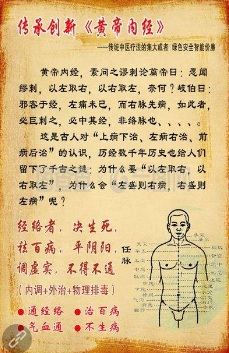 传承创新《黄帝内经》
——传统中医疗法的集大成者 绿色安全智能价廉
黄帝内经，素问之谬刺论篇帝曰：愿闻
缪刺，以左取右，以右取左，奈何？岐伯曰：
邪客于经，左痛未已，而右脉先病，如此者，
必巨刺之，必中其经，非络脉也、、、、。
这是古人对“上病下治、左病右治、前
病后治”的认识，历经数千年历史也给人们
留下了千古之谜，为什么要“以左取右、以
右取左”，为什么会“左盛则右病，右盛则
左病”呢？
经络者，决生死，
祛百病，平阴阳，
调虚实，不得不通
（内调+外治+物理排毒）
●通经络 ●治百病
●气血通 ●不生病
任脉